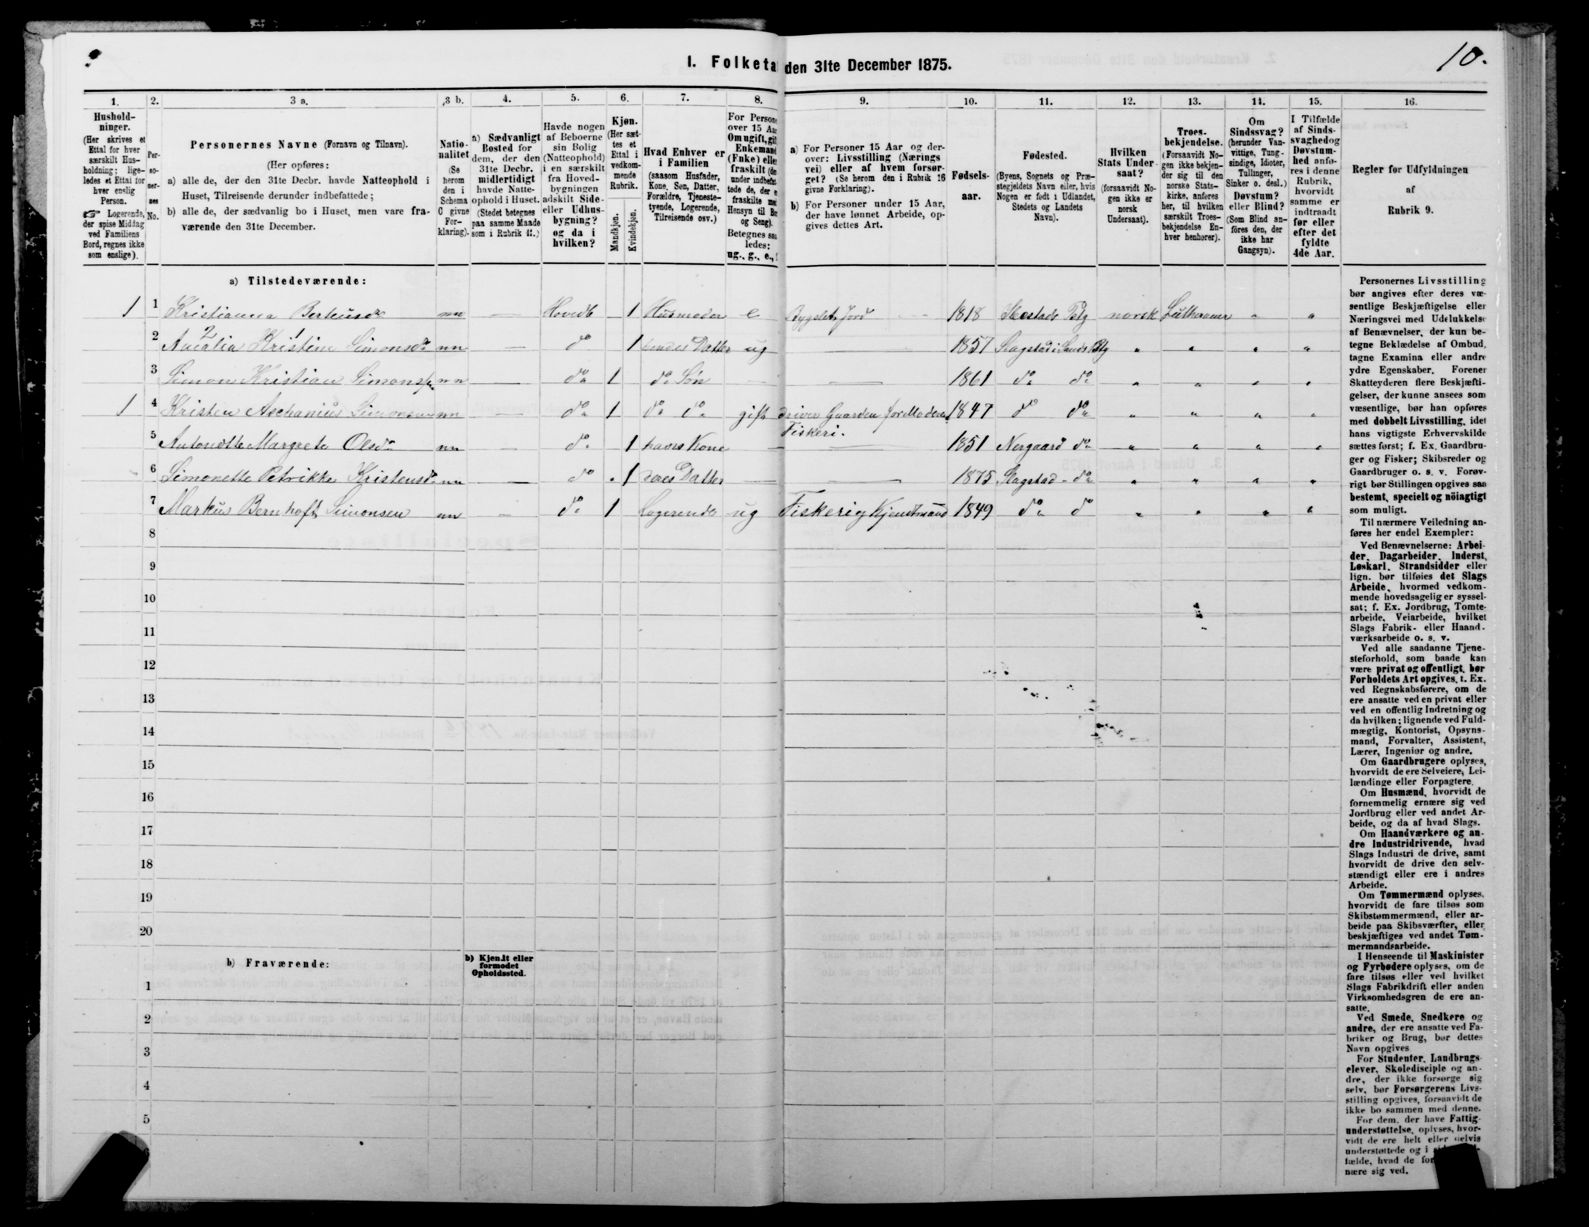 10.
1. Folketa den 31te December 1875.
1. 2. 3 a. 3 b. 4. 5. 6. 7. 8. 9. 10. 11. 12. 13. 14. 15. 16.
Hushold-
ninger.
(Her skrives et
Ettal for hver
særskilt Hus-
holdning; lige-
ledes et Ettal for
hver enslig
Person.
☞ Logerende,
der spise Middag
ved Familiens
Bord, regnes ikke
som enslige).
Per-
so-
ner-
nes
No.
Personernes Navne (Fornavn og Tilnavn).
(Her opføres:
a) alle de, der den 31te Decbr. havde Natteophold i
Huset, Tilreisende derunder indbefattede;
b) alle de, der sædvanlig bo i Huset, men vare fra-
værende den 31te December.
Natio-
nalitet
(Se
herom
den i
Schema
C givne
For-
klaring).
a) Sædvanligt
Bosted for
dem, der den
31te Decbr.
midlertidigt
havde Natte-
ophold i Huset.
(Stedet betegnes
paa samme Maade
som i Rubrik 11.)
Havde nogen
af Beboerne
sin Bolig
(Natteophold)
i en særskilt
fra Hoved-
bygningen
adskilt Side-
eller Udhus-
bygning?
og da i
hvilken?
Kjøn.
(Her sæt-
tes et
Ettal i
vedkom-
mende
Rubrik.
Mandkjøn.
Kvindekjøn.
Hvad Enhver er
i Familien
(saasom Husfader,
Kone, Søn, Datter,
Forældre, Tjeneste-
tyende, Logerende,
Tilreisende osv.)
For Persone
over 15 Aa
Om ugift, gif
Enkemand
(Enke) elle
fraskilt (de
under indbefat-
tede de, der e
fraskilte me
Hensyn til Bo
og Seng).
Betegnes saa
ledes:
ug., g., e.,
a) For Personer 15 Aar og der-
over: Livsstilling (Nærings
vei) eller af hvem forsør-
get? (Se herom den i Rubrik 16
givne Forklaring).
b) For Personer under 15 Aar,
der have lønnet Arbeide, op-
gives dettes Art.
Fødsels-
aar.
Fødested.
(Byens, Sognets og Præ-
stegjeldets Navn eller, hvis
Nogen er født i Udlandet,
Stedets og Landets
Navn).
Hvilken
Stats Under-
saat?
(forsaavidt No-
gen ikke er
norsk
Undersaat).
Troes-
bekjendelse.
(Forsaavidt No-
gen ikke bekjen-
der sig til den
norske Stats-
kirke, anføres
her, til hvilken
særskilt Troes-
bekjendelse En-
hver henhører).
Om
Sindssvag?
(herunder Van-
vittige, Tung-
sindige, Idioter,
Tullinger,
Sinker o. desl.)
Døvstum?
eller Blind?
(Som Blind an-
føres den, der
ikke har
Gangsyn).
I Tilfælde
af Sinds-
svaghed og
Døvstum-
hed anfø-
res i denne
Rubrik,
hvorvidt
samme er
indtraadt
før eller
efter det
fyldte
4de Aar.
Regler for Udfyldningen
af
Rubrik 9.
a) Tilstedeværende:
1 1 Kristianna Berteusdr nn — Hovedb 1 Husmoder e Bygslet Jord 1818 norsk Lutheraner " "
2 Amalia Kristine Simonsdr nn — do 1 hendes Datter ug — 1857 Slagstad i Sands Pbg " " " "
3 Simon Kristian Simons nn — do 1 do Søn — — 1861 do do " " " "
1 4 Kristen Aschanius Simonsen nn — do 1 do do gift driver Gaarden for Moderen Fiskeri. 1847 do do " " " "
5 Antonette Margrete Olsdr nn — do 1 hans Kone — 1851 Nergaard do " " " "
6 Simonette Petrikke Kristensdr nn — do 1 Datter — — 1875 Slagstad do " " " "
7 Markus Bernhoft Simonsen nn — do 1 Logerende ug Fiskeri 1849 do do " " " "
8
9
10
11
12
13
14
15
16
17
18
19
20
b) Fraværende:
b) Kjendt eller
formodet
Opholdssted.
1
2
3
4
5
Personernes Livsstilling
bør angives efter deres væ-
sentlige Beskjæftigelse eller
Næringsvei med Udelukkelse
af Benævnelser, der kun be-
tegne Beklædelse af Ombud,
tagne Examina eller andre
ydre Egenskaber. Forener
Skatteyderen flere Beskjæfti-
gelser, der kunne ansees som
væsentlige, bør han opføres
med dobbelt Livsstilling, idet
hans vigtigste Erhvervskilde
sættes først; f. Ex. Gaardbru-
ger og Fisker; Skibsreder og
Gaardbruger o. s. v. Forøv-
rigt bør Stillingen opgives saa
bestemt, specielt og nøiagtigt
som muligt.
Til nærmere Veiledning an-
føres her endel Exempler:
Ved Benævnelserne: Arbei-
der, Dagarbeider, Inderst,
Løskarl, Strandsidder eller
lign. bør tilføies det Slags
Arbeide, hvormed vedkom-
mende hovedsagelig er syssel-
sat; f. Ex. Jordbrug, Tomte-
arbeide, Veiarbeide, hvilket
Slags Fabrik- eller Haand-
værksarbeide o. s. v.
Ved alle saadanne Tjene-
steforhold, som baade kan
være privat og offentligt, bør
Forholdets Art opgives, t. Ex.
ved Regnskabsførere, om de
ere ansatte ved en privat eller
ved en offentlig Indretning og
da hvilken; lignende ved Fuld-
mægtig, Kontorist, Opsyns-
mand, Forvalter, Assistent,
Lærer, Ingeniør og andre.
Om Gaardbrugere oplyses,
hvorvidt de ere Selveiere, Lei-
lændinge eller Forpagtere.
Om Husmænd, hvorvidt de
fornemmelig ernære sig ved
Jordbrug eller ved andet Ar-
beide, og da af hvad Slags.
Om Haandværkere og an-
dre Industridrivende, hvad
Slags Industri de drive, samt
hvorvidt de drive den selv-
stændigt eller ere i andres
Arbeide.
Om Tømmermænd oplyses,
hvorvidt de fare tilsøs som
Skibstømmermænd, eller ar-
beide paa Skibsværfter, eller
beskjæftiges ved andet Tøm-
mermandsarbeide.
I Henseende til Maskinister
og Fyrbødere oplyses, om de
fare tilsøs eller ved hvilket
Slags Fabrikdrift eller anden
Virksomhedsgren de ere an-
satte.
Ved Smede, Snedkere og
andre, der ere ansatte ved Fa-
briker og Brug, bør dettes
Navn opgives
For Studenter, Landbrugs-
elever, Skoledisciple og an-
dre, der ikke forsørge sig
selv, bør Forsørgerens Livs-
stilling opgives, forsaavidt de
ikke bo sammen med denne.
For dem, der have Fattig-
understøttelse, oplyses, hvor-
vidt de ere helt eller delvis
understøttede og i
fælde, hvad de for
nære sig ved.